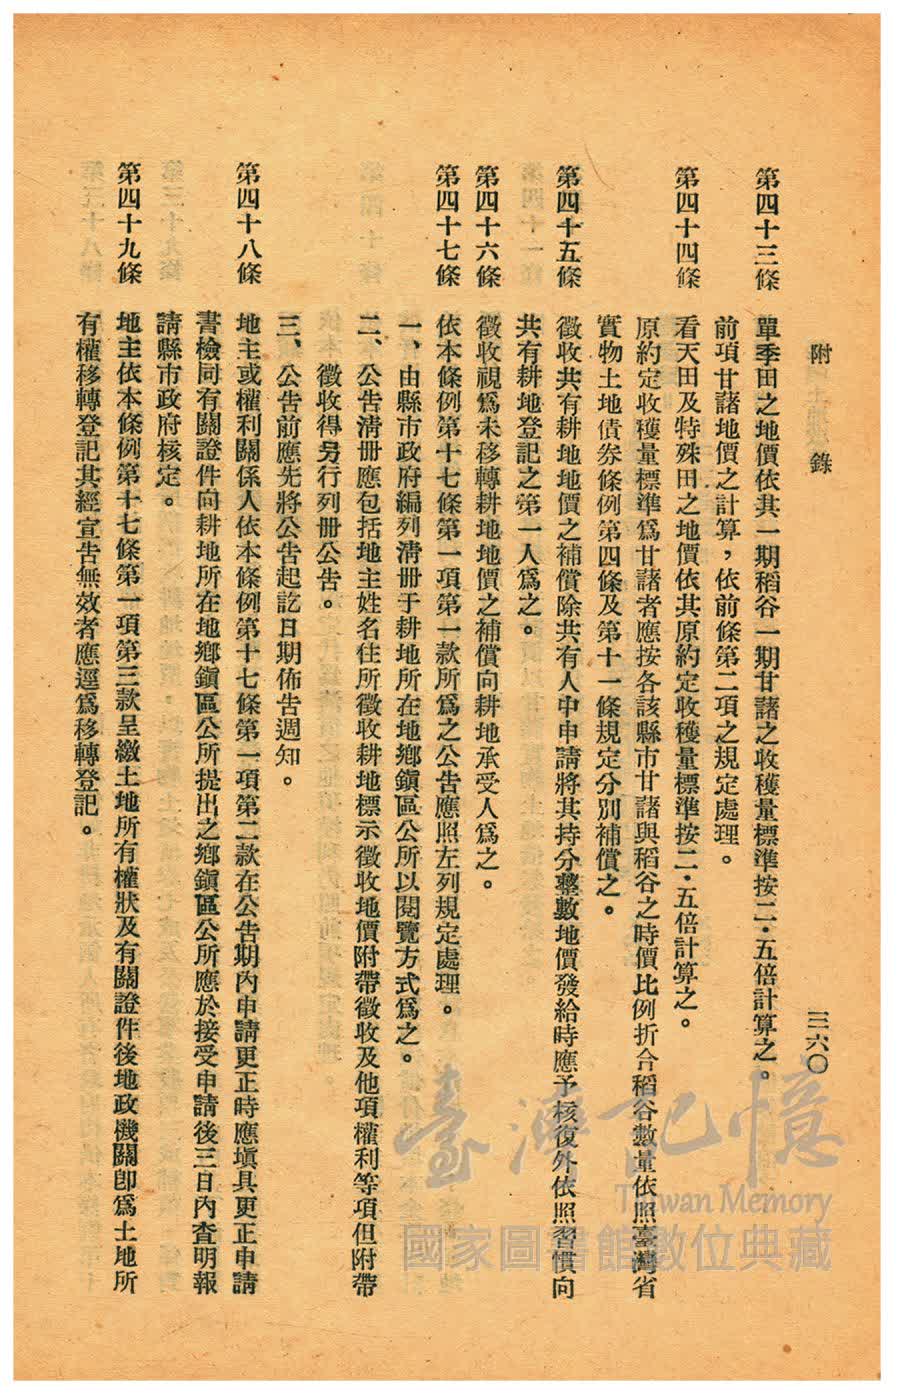 附錄
三六〇
第四十三條　單季田之地價依其一期稻谷一期甘藷之收穫量標準按二·五倍計算之。
前項甘諸地價之計算，依前條第二項之規定處理。
第四十四條　看天田及特殊田之地價依其原約定收穫量標準按二·五倍計算之。
原約定收穫量標準爲甘諸者應按各該縣市甘諸與稻谷之時價比例折合稻谷數量依照臺灣省
實物土地債券條例第四條及第十一條規定分別補償之。
第四十五條　徵收共有耕地地價之補償除共有人中申請將其持分整數地價發給時應予核復外依照習慣向
共有耕地登記之第一人爲之。
第四十六條　徵收視爲未移轉耕地地價之補償向耕地承受人爲之。
第四十七條　依本條例第十七條第一項第一款所爲之公告應照左列規定處理。
一、由縣市政府編列清册于耕地所在地鄉鎭區公所以閱覽方式爲之。
二、公告清册應包括地主姓名住所徵收耕地標示徵收地價附帶徵收及他項權利等項但附帶
徵收得另行列册公告。
三、公告前應先將公告起訖日期佈告週知。
第四十八條　地主或權利關係人依本條例第十七條第一項第二款在公告期內申請更正時應塡具更正申請
書檢同有關證件向耕地所在地鄉鎭區公所提出之鄉鎭區公所應於接受申請後三日內查明報
請縣市政府核定。
第四十九條　地主依本條例第十七條第一項第三款呈繳土地所有權狀及有關證件後地政機關卽爲土地所
有權移轉登記其經宣告無效者應逕爲移轉登記。
臺灣記憶
Taiwan Memory
國家圖書館數位典藏